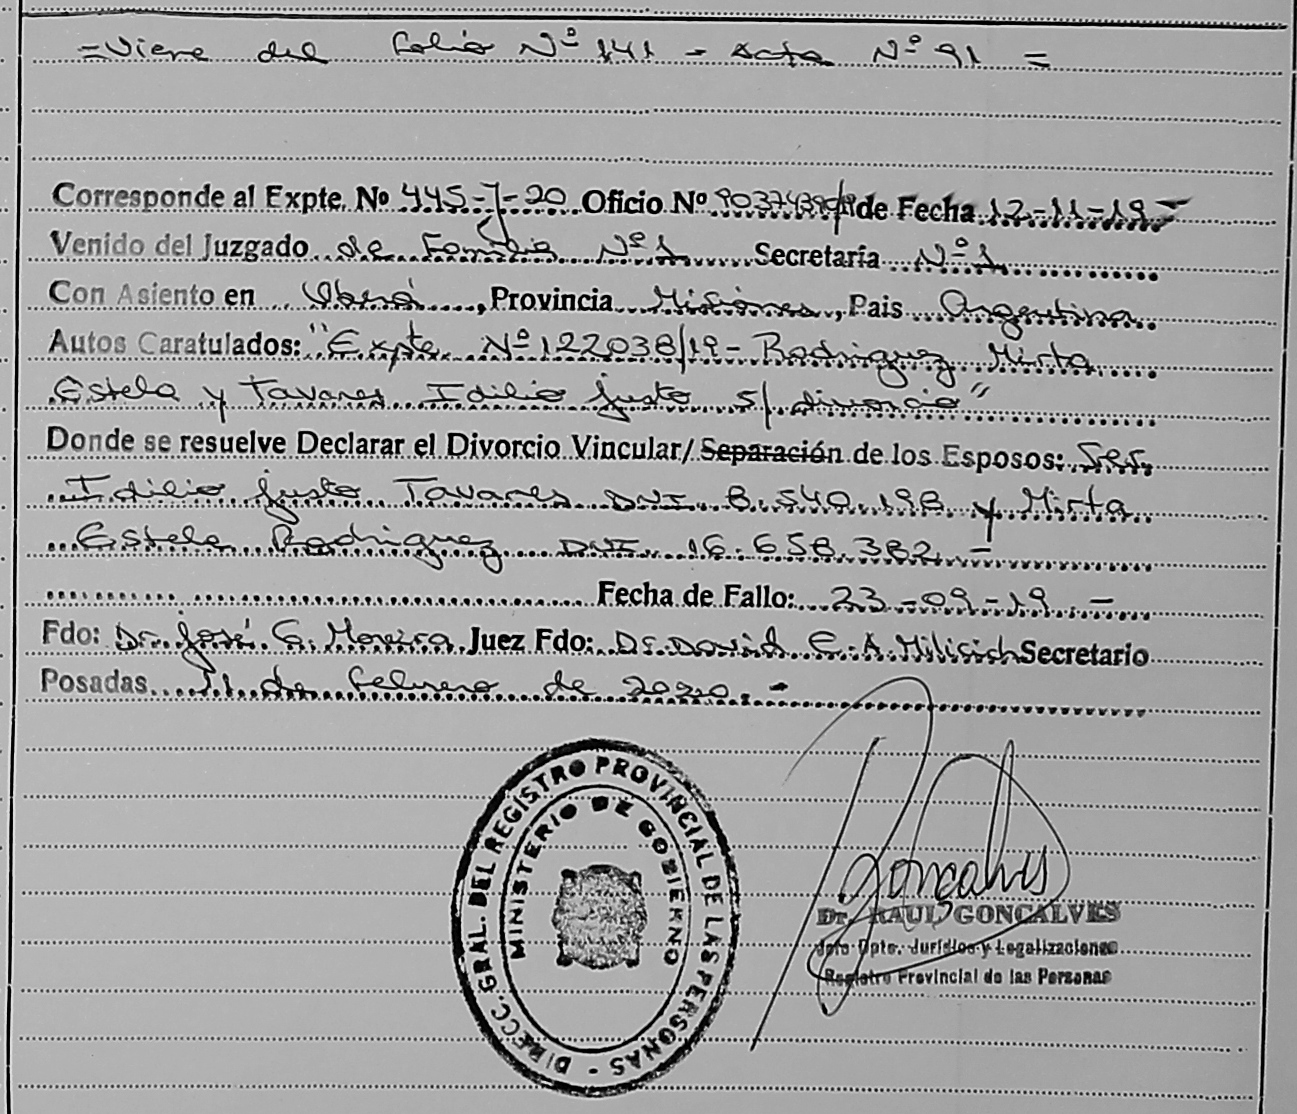 =Viene del folio Nº 141 - Acta Nº 91 =
Corresponde al Expte. Nº 445-J-20 Oficio Nº de Fecha 12-11-19-
Venido del Juzgado de Familia Nº 1 Secretaría Nº 1
Con Asiento en Oberá, Provincia Misiones, Pais Argentina
Autos Caratulados: "Expte. Nº 122038/19- Rodriguez Mirta
Estela y Tavares Idilio Justo s/ divorcio"
Donde se resuelve Declarar el Divorcio Vincular/ Separación de los Esposos: Ses.
Idilio Justo Tavares DNI 8.540.198 y Mirta
Estela Rodriguez DNI. 16.658.382.-
Fecha de Fallo: 23-09-19.-
Fdo: Dr. José G. Moreira Juez Fdo: Dr. David E. A. Milicich Secretario
Posadas 11 de febrero de 2020.-
DIRECC. GRAL. DEL REGISTRO PROVINCIAL DE LAS PERSONAS -
MINISTERIO DE GOBIERNO
Goncalves
Dr. RAUL GONCALVES
Jefe Dpto. Jurídico y Legalizaciones
Registro Provincial de las Personas